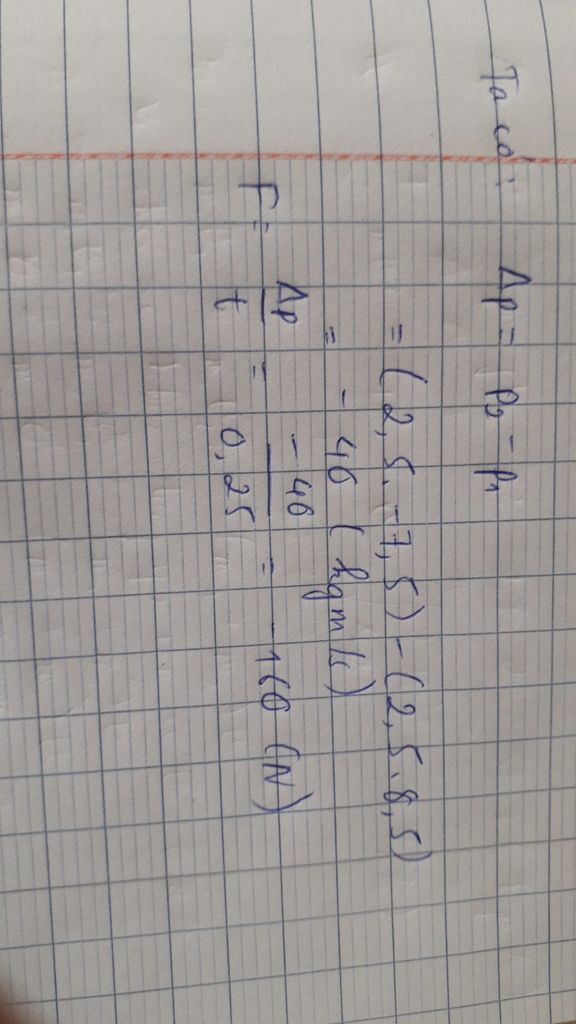 Ta có: Δp = p₂ - p₁
= (2,5.-7,5) - (2,5.8,5)
= - 40 (kgm/s)
F = Δp/t = -40/0,25 = -160 (N)